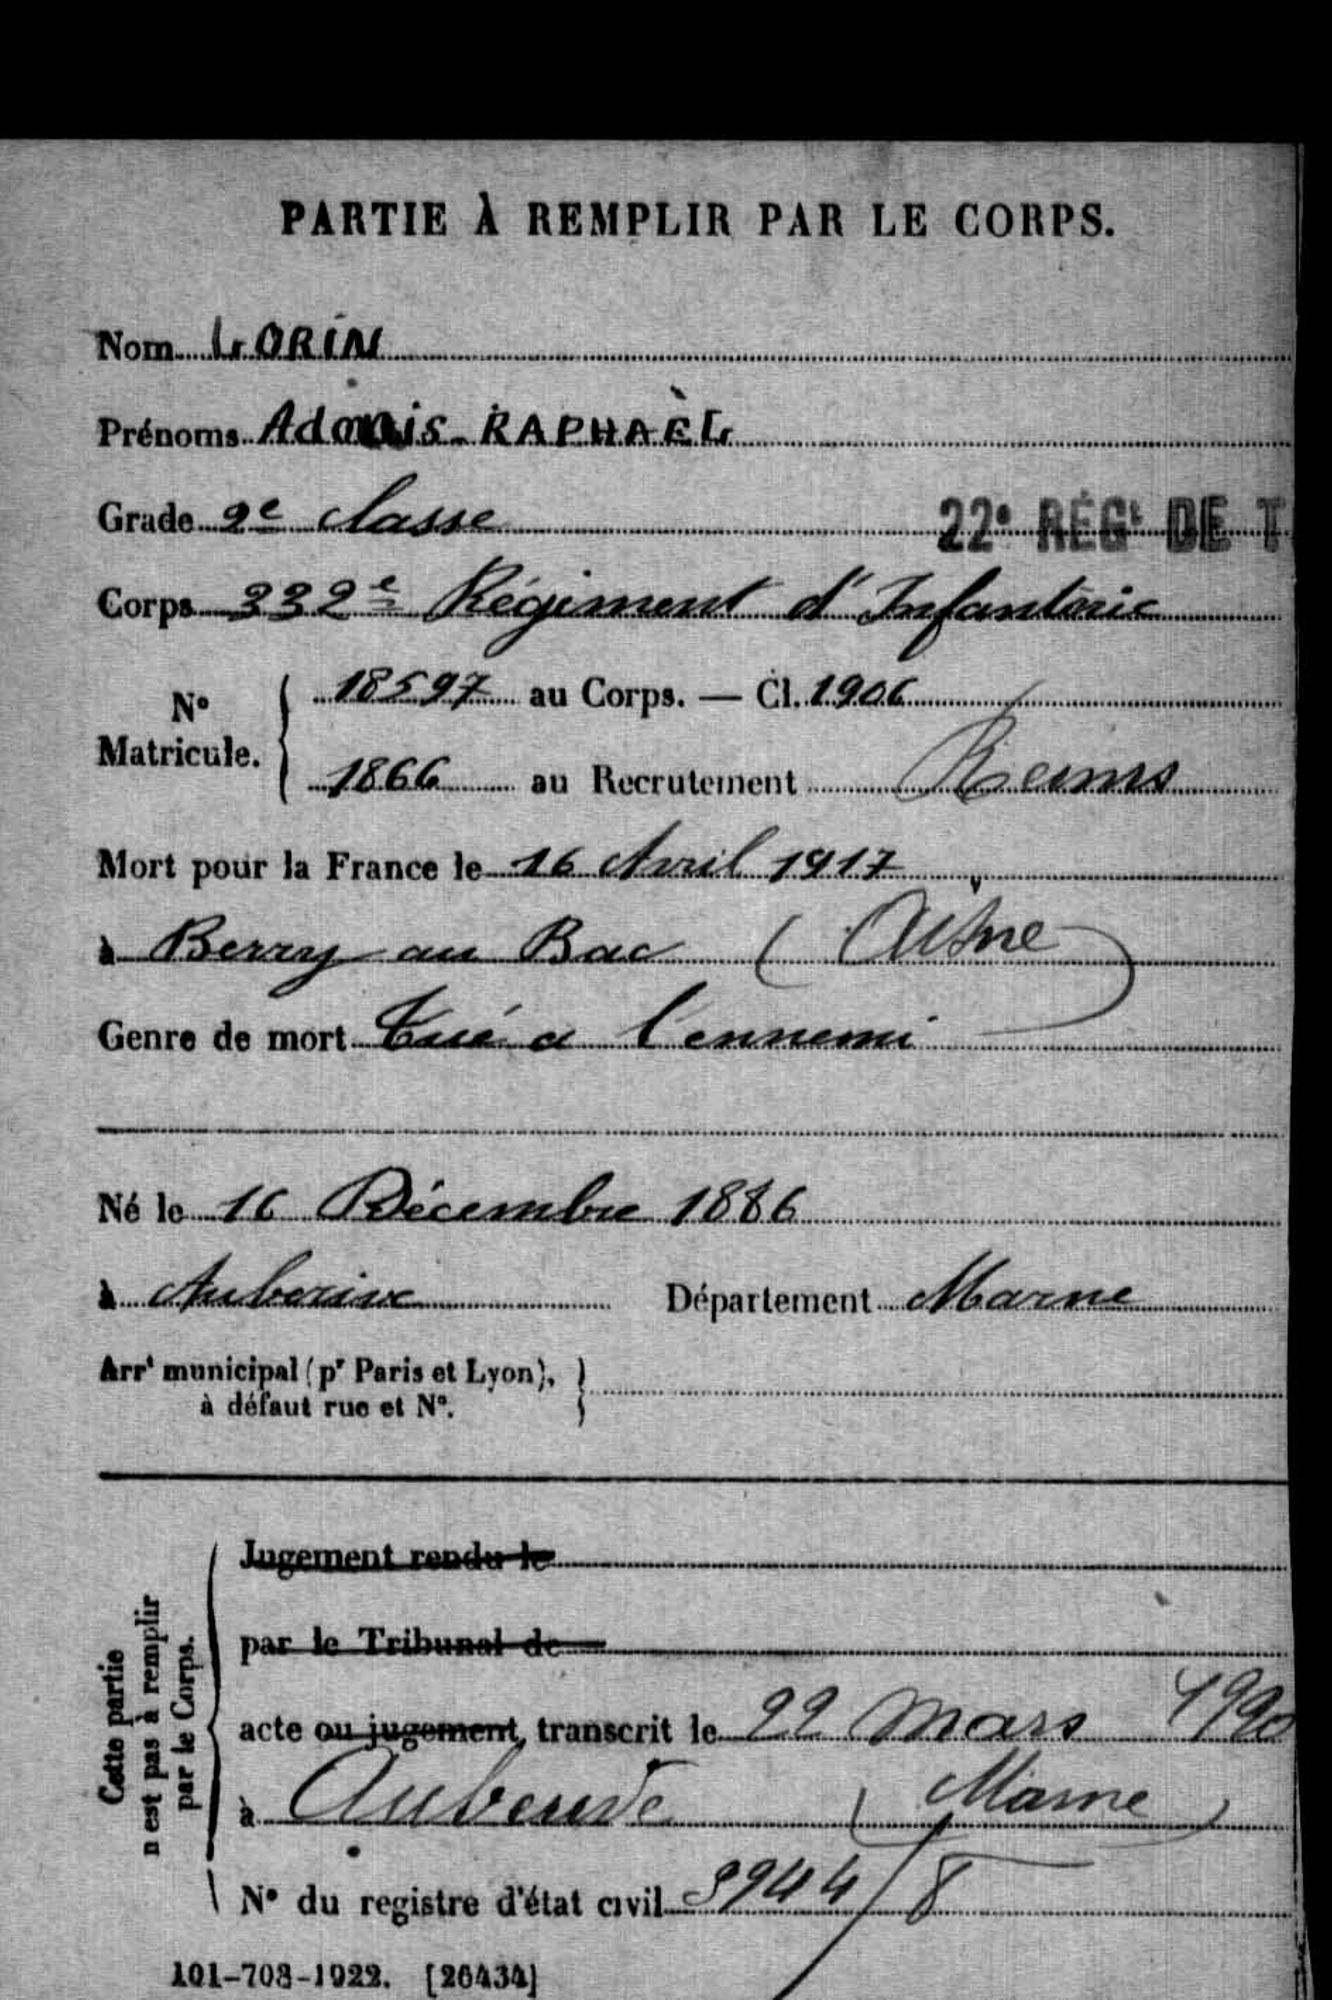 PARTIE À REMPLIR PAR LE CORPS.
Nom LORIN
Prénoms Adonis RAPHAËL
Grade 2e classe
22e RÉGt DE T
Corps 332e Régiment d'Infanterie
No Matricule. 18597 au Corps. — Cl. 1906
1866 au Recrutement Reims
Mort pour la France le 16 Avril 1917
à Berry au Bac (Aisne)
Genre de mort Tué a l'ennemi
Né le 16 Décembre 1886
à Auberive Département Marne
Arrt municipal (pr Paris et Lyon),
à défaut rue et No.
Cette partie
n'est pas à remplir
par le Corps.
Jugement rendu le
par le Tribunal de
acte ou jugement, transcrit le 22 Mars 1920
à Auberive (Marne)
No du registre d'état civil 3944/8
101-708-1922. [26434]